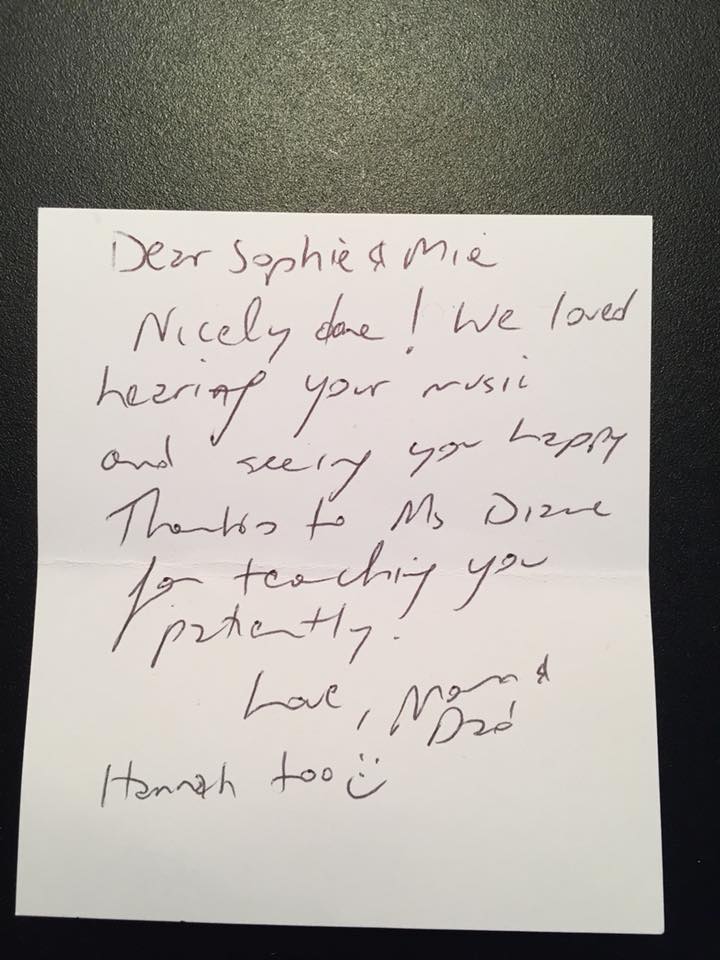 Dear Sophie & Mie
Nicely done! We loved
hearing your music
and seeing you happy
Thanks to Ms Diane
for teaching you
patiently.
Love, Mom &
Dad
Hannah too :)